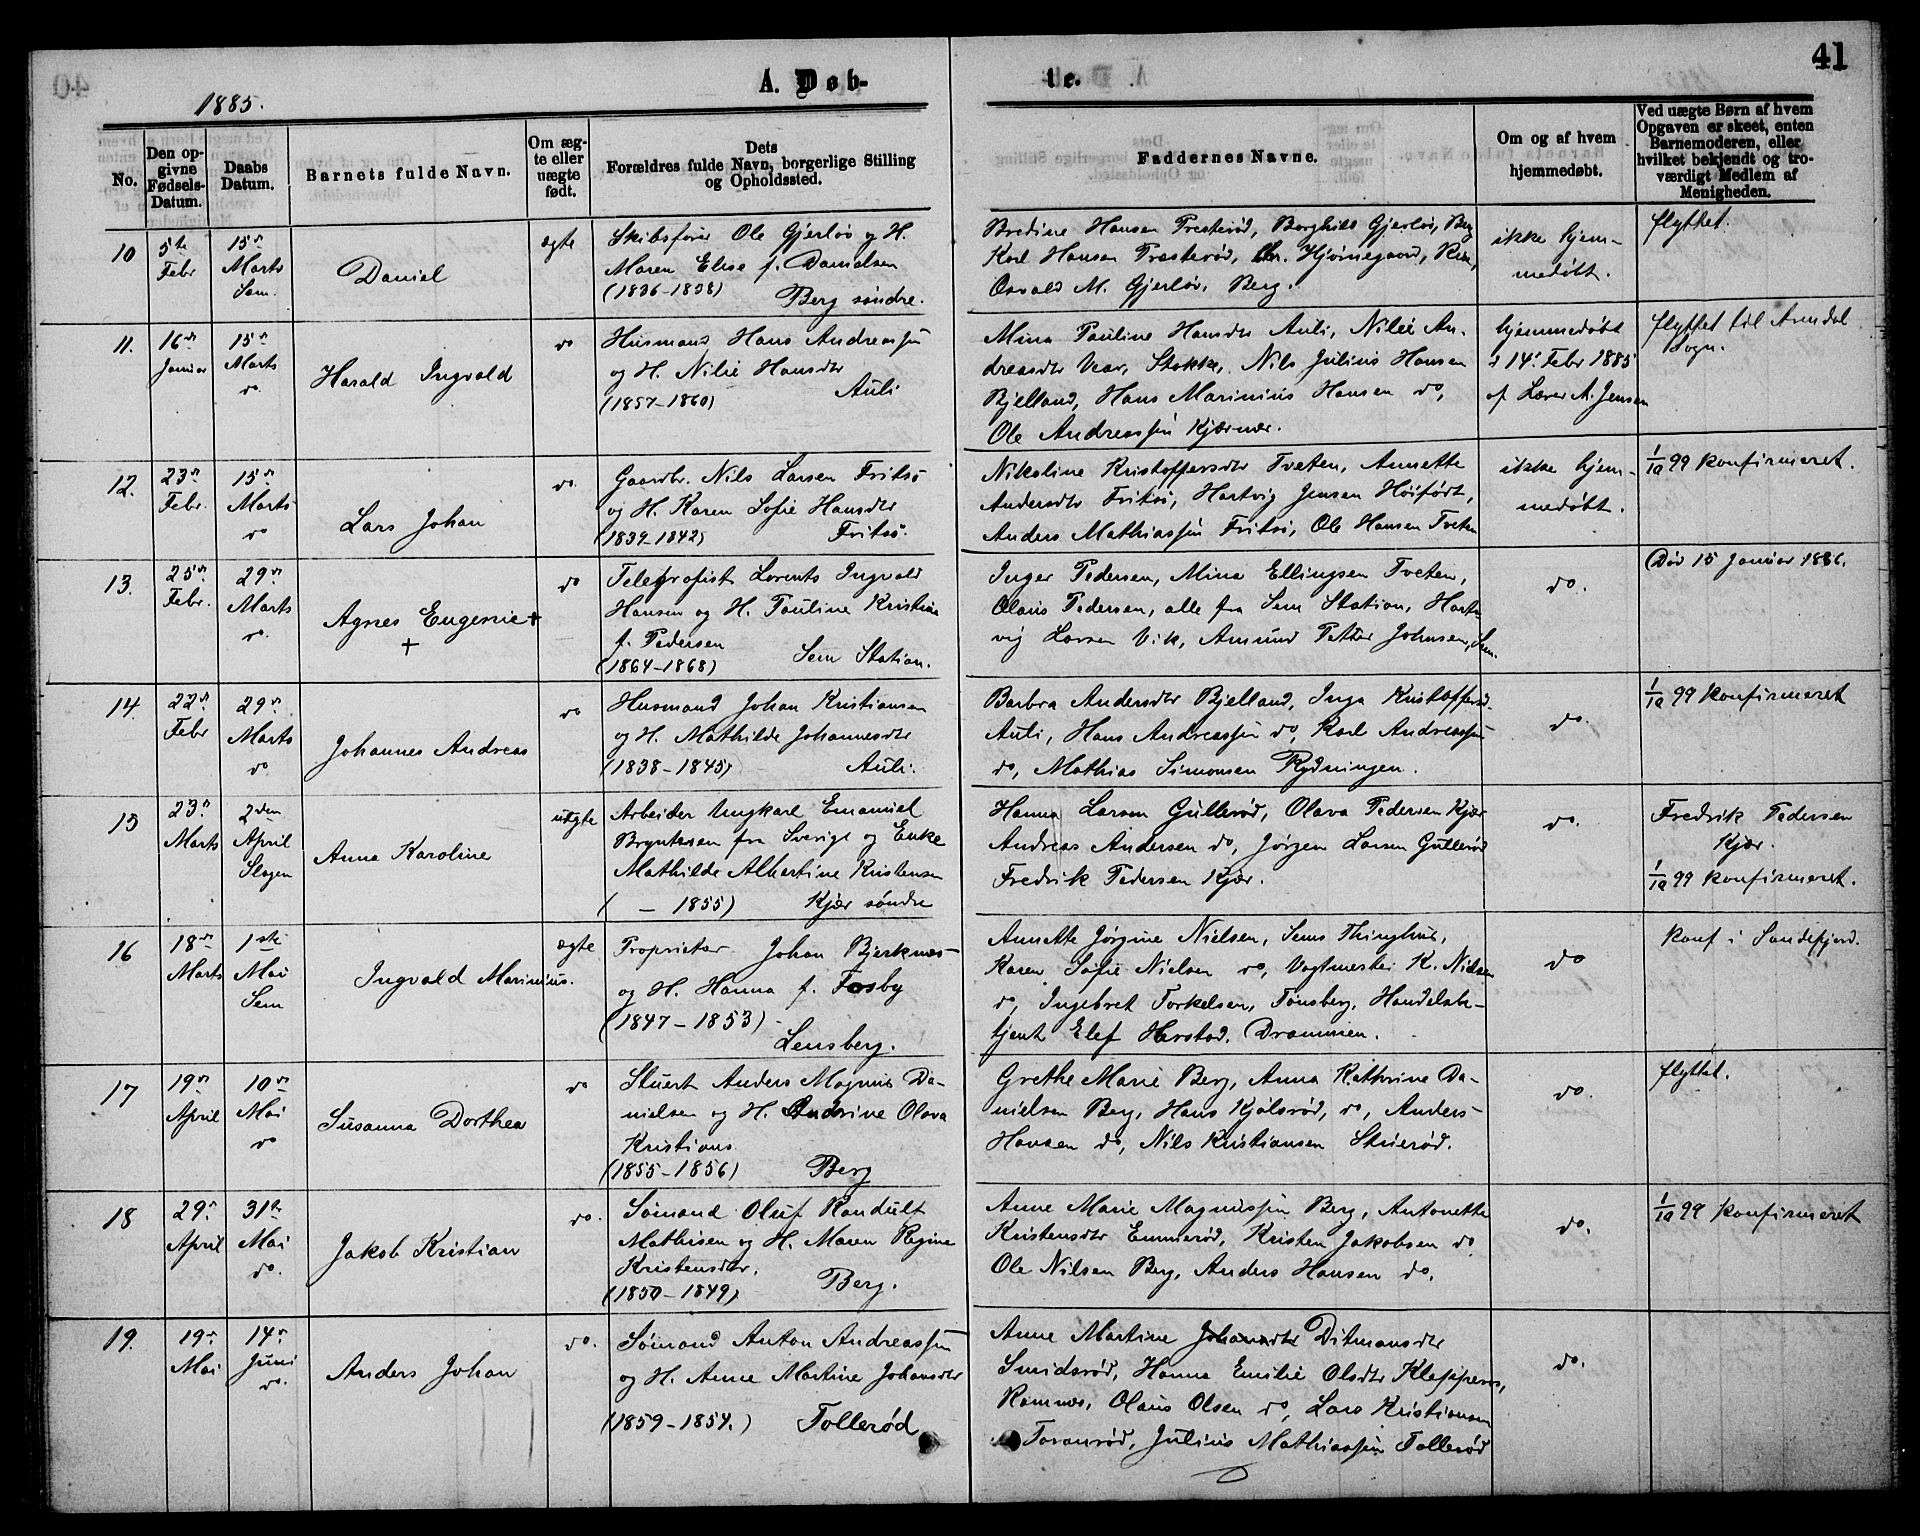 41
A. Døb-
te.
1885.
No.
Den op-
givne
Fødsels-
Datum.
Daabs
Datum.
Barnets fulde Navn.
Om æg-
te eller
uægte
født.
Dets
Forældres fulde Navn, borgerlige Stilling
og Opholdssted.
Faddernes Navne.
Om og af hvem
hjemmedøbt.
Ved uægte Børn af hvem
Opgaven er skeet, enten
Barnemoderen, eller
hvilket bekjendt og tro-
værdigt Medlem af
Menigheden.
10
5te
Febr
15de
Marts
Sem.
Daniel
ægte
Skibsfører Ole Gjerløv og H.
Maren Elise f. Danielsen
(1836-1838)
Berg søndre.
Bredine Hansen Presterød, Borghild Gjerløv, Berg
Karl Hansen Presterød, Chr. Hjørnegaard,
Osvald M. Gjerløv, Berg.
ikke hjem-
medøbt.
flyttet.
11.
16de
Januar
15de
Marts
do.
Harald Ingvald
do
Husmand Hans Andreassen
og H. Nilie Hansdtr
(1857-1860)
Auli
Mina Pauline Hansdtr Auli, Nilie An-
dreasdtr Vear, Stokke, Nils Julius Hansen
Bjelland, Hans Marinius Hansen do,
Ole Andreassen Kjærnær.
hjemmedøbt
d 14. Febr 1885
af Lærer A. Jensen
flyttet til Arendal
Sogn.
12.
23de
Febr.
15de
Marts
do
Lars Johan
do.
Gaardbr. Nils Larsen Fritsø
og H. Karen Sofie Hansdtr
(1839-1842)
Fritsø.
Nikoline Kristoffersdtr Tveten, Annette
Andersdtr Fritsø, Hartvig Jensen Høifødt,
Anders Mathiassen Fritsø, Ole Hansen Tveten
ikke hjem-
medøbt.
1/10 99 konfirmeret.
13.
25de
Febr.
29de
Marts
do.
Agnes Eugenie+
+
do
Telegrafist Lorents Ingvald
Hansen og H. Pauline Kristina
f. Pedersen
(1864-1868)
Sem Station.
Inger Pedersen, Mina Ellingsen Tveten,
Olaus Pedersen, alle fra Sem Station, Hart-
vig Larsen Vik, Amund Petter Johnsen, Sem.
do.
Død 15 Januar 1886.
14.
22de
Febr
29de
Marts
do
Johannes Andreas
do
Husmand Johan Kristiansen
og H. Mathilde Johannesdtr
(1838-1845)
Auli.
Barbra Andersdtr Bjelland, Inga Kristoffersd.
Auli, Hans Andreassen do, Karl Andreassen
do, Mathias Simonsen Rydningen.
do.
1/10 99 konfirmeret
15
23de
Marts
2den
April
Slagen
Anna Karoline
uægte
Arbeider Ungkarl Emanuel
Bryntesen fra Sverige og Enke
Mathilde Albertine Kristensen
( - 1855)
Kjær søndre
Hanna Larsen Gullerød, Olava Pedersen Kjær
Andreas Andersen do, Jørgen Larsen Gullerød
Fredrik Pedersen Kjær.
do.
Fredrik Pedersen
Kjær.
1/10 99 konfirmeret.
16
18de
Marts
1ste
Mai
Sem
Ingvald Marinius.
ægte
Proprietær Johan Bjerknes
og H. Hanna f. Fosby
(1847-1853)
Lensberg.
Annette Jørgine Nielsen, Sems Thinghus,
Karen Sofie Nielsen do, Vogtmester K. Nielsen
do, Ingebret Torkelsen, Tønsberg, Handelsbe-
tjent Elef Harstad, Drammen.
do
Konf i Sandefjord.
17
19de
April
10de
Mai
do
Susanna Dorthea
do
Stuert Anders Magnus Da-
nielsen og H. Andrine Olava
Kristians
(1855-1856)
Berg
Grethe Marie Berg, Anna Kathrine Da-
nielsen Berg, Hans Kjølsrød, do, Anders
Hansen do, Nils Kristiansen Skuerød.
do.
flyttet.
18
29de
April
31te
Mai
do.
Jakob Kristian
do.
Sømand Oluf Randulf
Mathisen og H. Maren Regine
Kristensdtr.
(1850-1849)
Berg.
Anne Marie Magnussen Berg, Antonette
Kristensdtr Emmerød, Kristen Jakobsen do
Ole Nilsen Berg, Anders Hansen do.
do.
1/10 99 konfirmeret
19.
19de
Mai
14de
Juni
do.
Anders Johan
do.
Sømand Anton Andreassen
og H. Anne Martine Johansdtr
(1859-1854.)
Tollerød
Anne Martine Johansdtr Ditmansdtr
Smidsrød, Hanna Emilie Olsdtr Klopperos,
Ramnæs, Olaus Olsen do, Lars Kristiansen
Foranrød, Julius Mathiassen Tollerød
do.